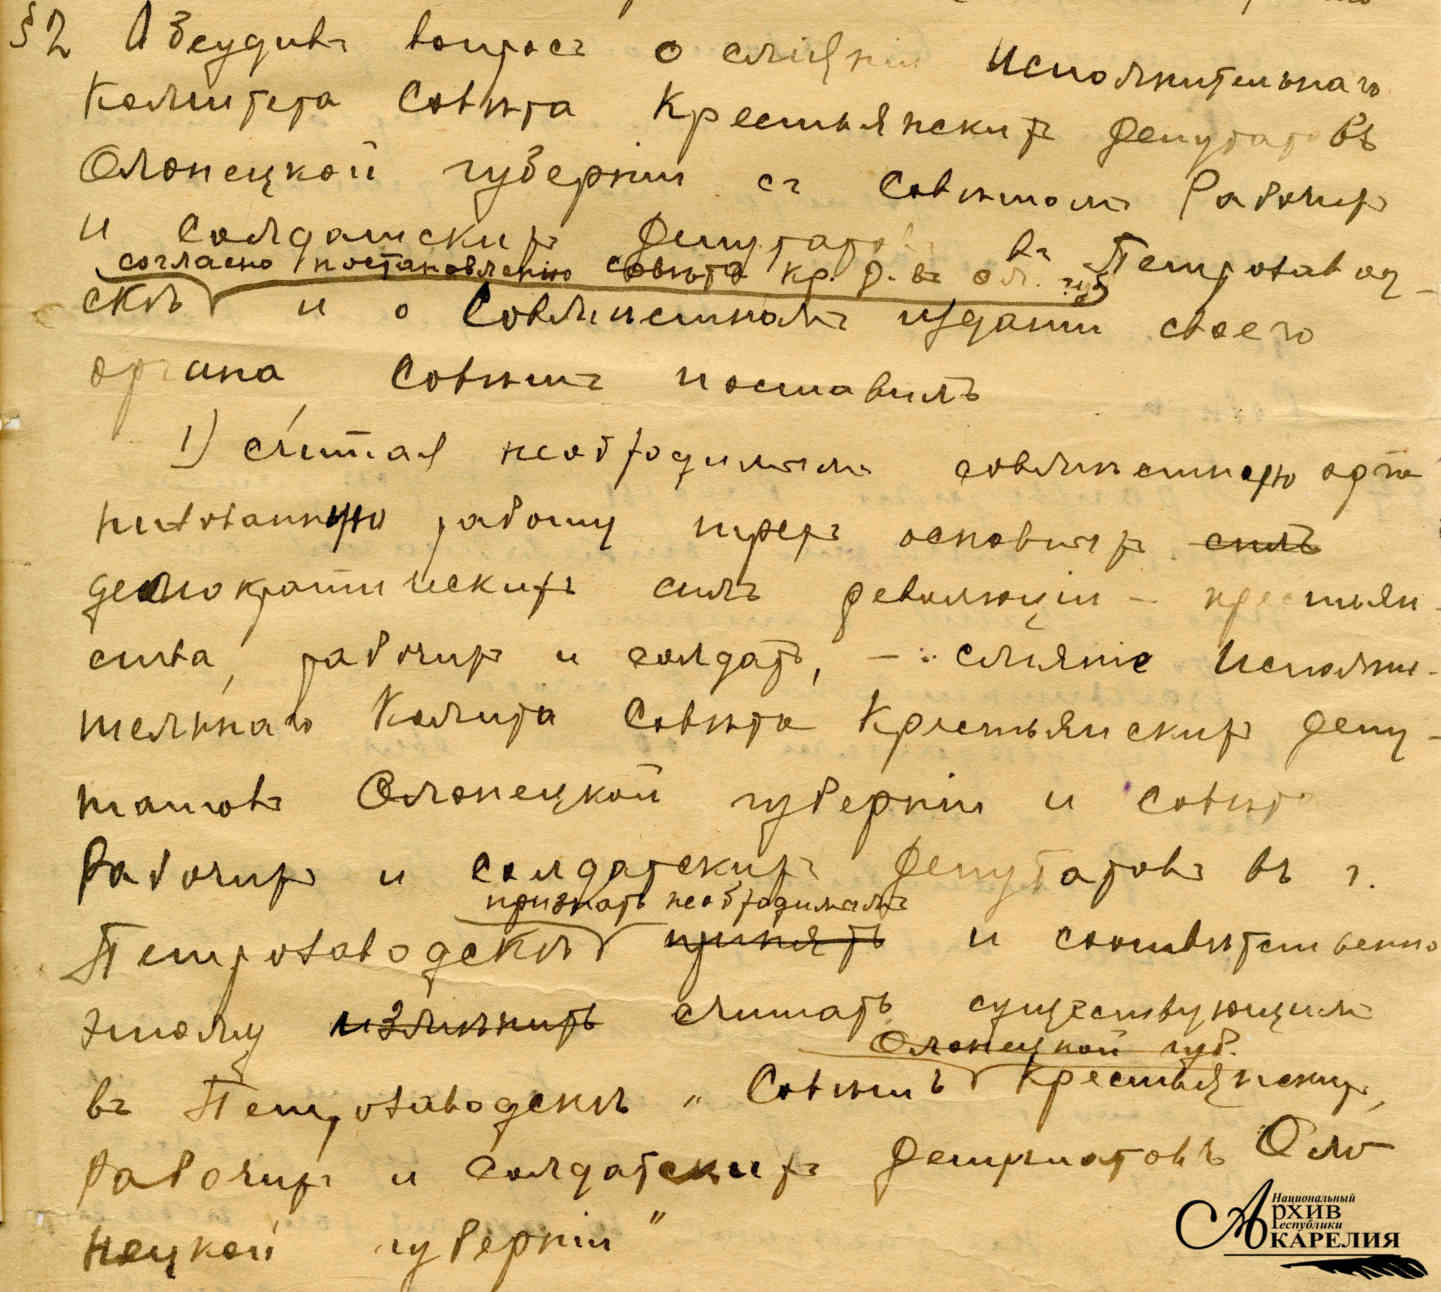 §2 Обсудивъ вопросъ о слiянiи Исполнительнаго
Комитета Совѣта Крестьянскихъ Депутатовъ
Олонецкой губернiи съ Совѣтомъ Рабочихъ
и Солдатскихъ Депутатовъ въ Петрозавод-
согласно постановленiю совѣта кр. д. въ ол. губ
скѣ и о совмѣстномъ изданiи своего
органа, Совѣтъ поставилъ
1) считая необходимымъ совмѣстную орга
низованную работу трехъ основныхъ силъ
демократическихъ силъ революцiи - крестьян-
ства, рабочихъ и солдатъ, - слiянiе Исполни-
тельнаго Комита Совѣта Крестьянскихъ Депу-
татовъ Олонецкой губернiи и Совѣта
Рабочихъ и Солдатскихъ Депутатовъ въ г.
признать необходимымъ
Петрозаводскѣ принять и соотвѣтственно
этому измѣнить считать существующимъ
Олонецкой губ.
въ Петрозаводскѣ „Совѣтъ Крестьянскихъ,
Рабочихъ и Солдатскихъ Депутатовъ Оло
нецкой губернiи"
Национальный
Архив
Республики
Карелия